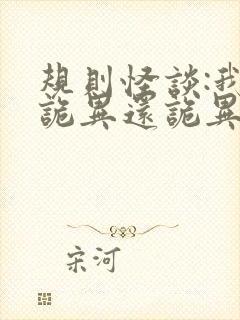 規則怪談:我
詭異還詭異
宋河